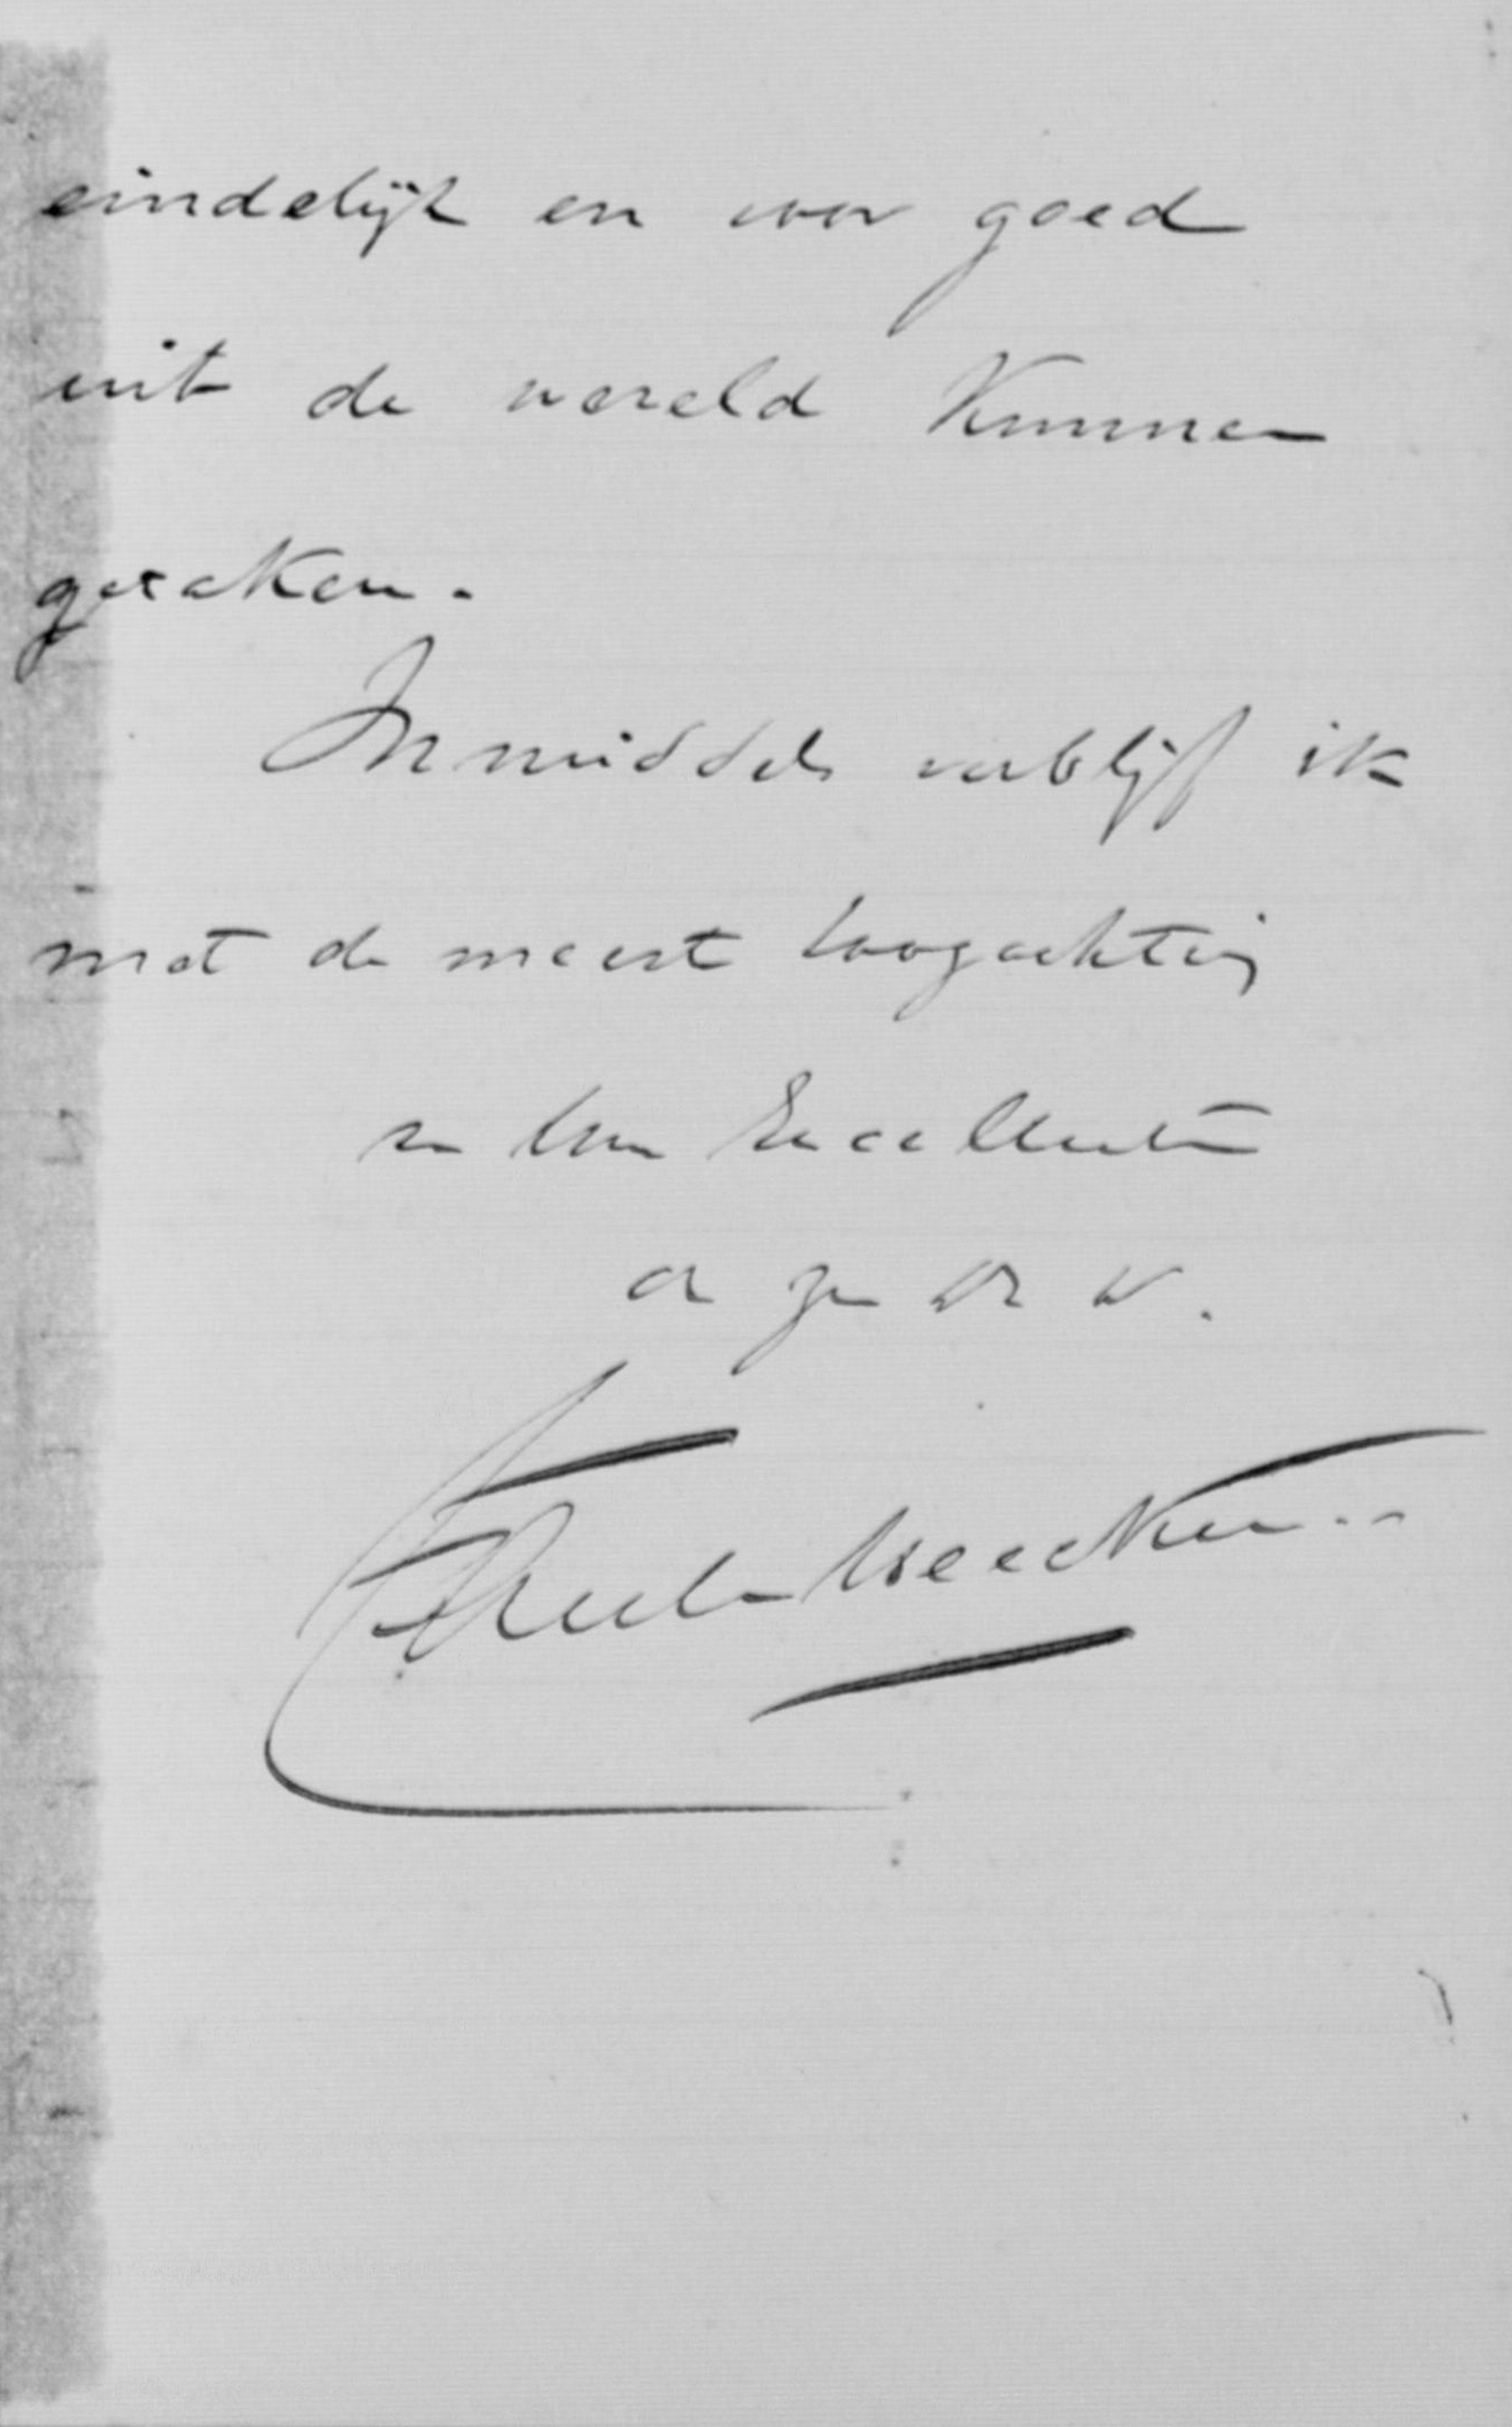 eindelijk en voor goed
uit de wereld kunnen
geraken.
Inmiddels verblijf ik
met de meest hoogachting
van Uwe Excellentie